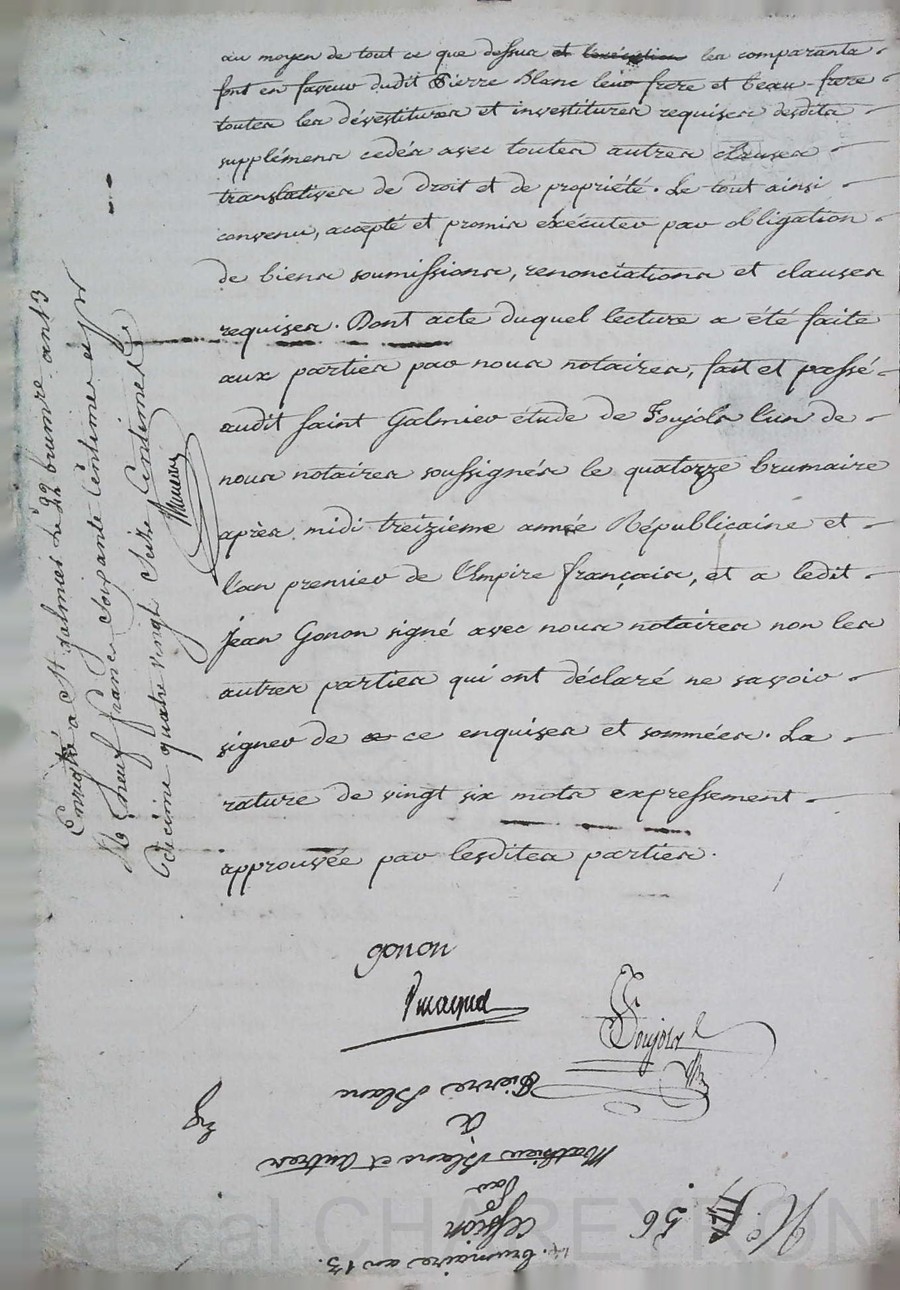 au moyen de tout ce que dessus et l'exécution les comparants
font en faveur dudit Pierre Blanc leur frere et beau-frere
toutes les dévestitures et investitures requises desdits
supplémens cedés avec toutes autres clauses
translatives de droit et de propriété. Le tout ainsi
convenu, accepté et promis exécuter par obligation
de biens soumissions, renonciations et clauses
requises. Dont acte duquel lecture a été faite
aux parties par nous notaires, fait et passé
audit saint Galmier étude de Foujols l'un de
nous notaires soussignés le quatorze brumaire
après midi treizieme année Républicaine et
l'an premier de l'Empire français, et a ledit
Jean Gonon signé avec nous notaires non les
autres parties qui ont déclaré ne savoir
signer de ce enquises et sommées. La
rature de vingt six mots expressement
approuvée par lesdites parties.
gonon
Foujols
Enregtré à St Galmier le 22 brumre an 13
neuf francs soixante centimes et pr
décime quatre vingt seize Centimes
14. brumaire an 13.
Cession
Par
Mathieu Blanc et autres
à
Pierre Blanc
N.° 56
Priscal CHAREYRON